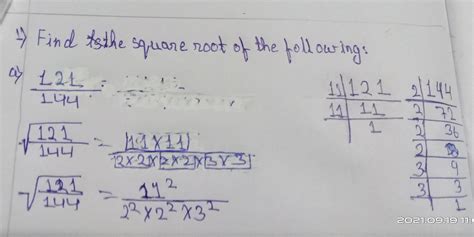 1) Find the square root of the following:
a) 121/144 =
√121/144 = 11×11/2×2×2×2×3×3
√121/144 = 11²/2²×2²×3²
11 | 121
11 | 11
1
2 | 144
2 | 72
2 | 36
2 |
3 | 9
3 | 3
1
2021.09.19 11: